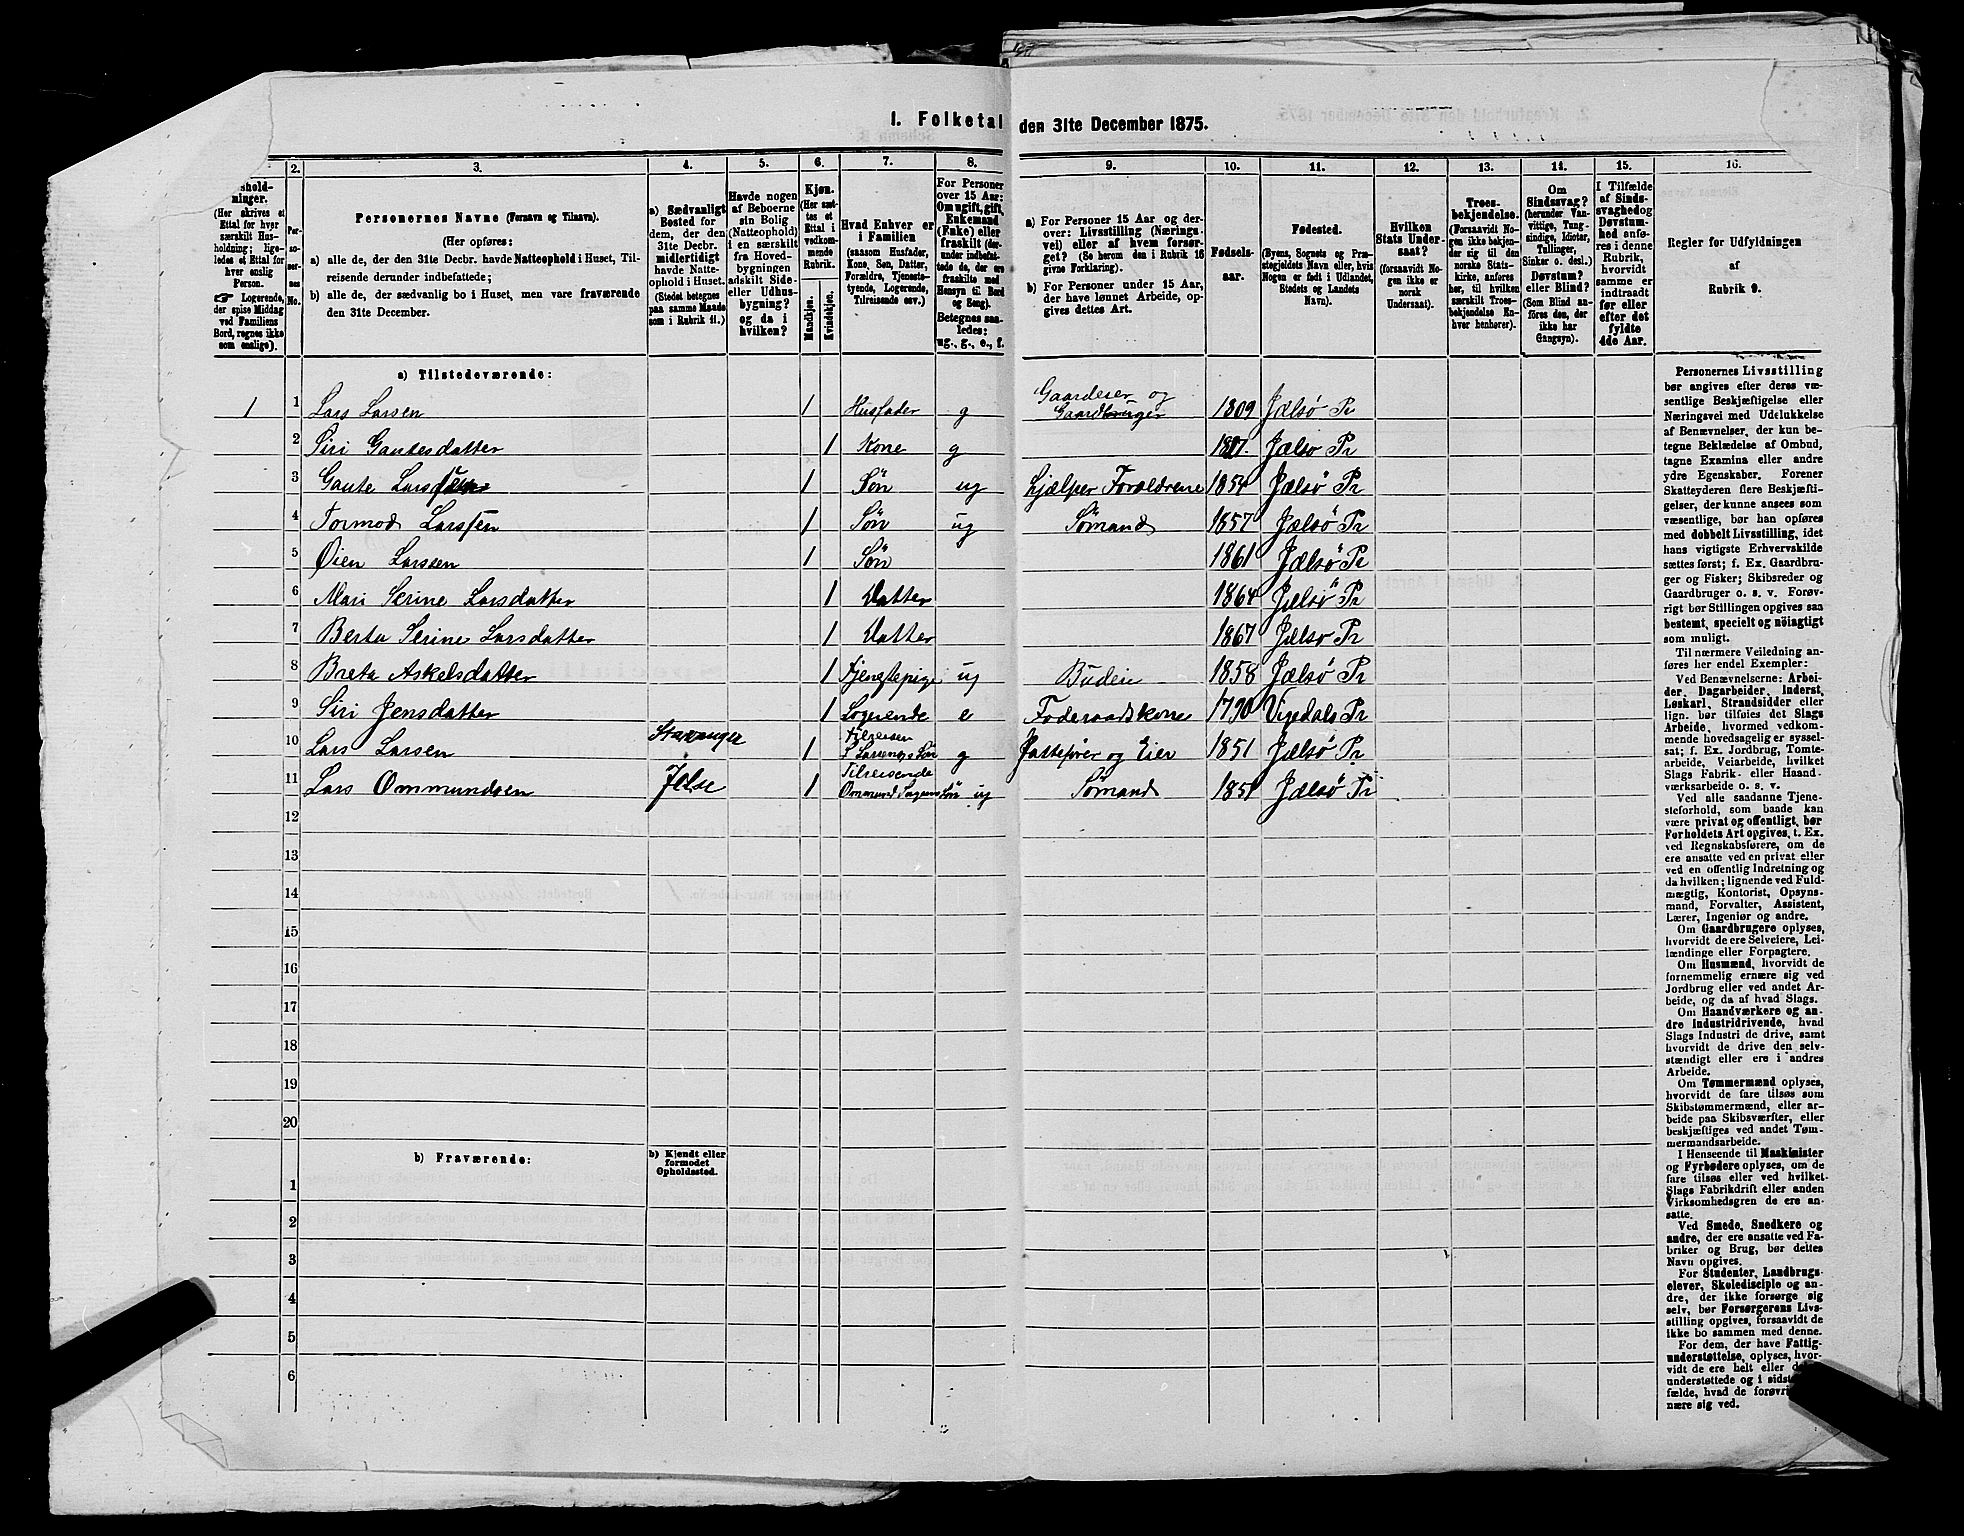 I. Folketal den 31te December 1875.
2. 3. 4. 5. 6. 7. 8. 9. 10. 11. 12. 13. 14. 15. 16.
shold-
ninger.
(Her skrives et
Ettal for hver
særskilt Hus-
holdning; lige-
ledes et Ettal for
hver enslig
Person.
☞ Logerende,
der spise Middag
ved Familiens
Bord, regnes ikke
som enslige).
Per-
so-
ner-
nes
No.
Personernes Navne (Fornavn og Tilnavn).
(Her opføres:
a) alle de, der den 31te Decbr. havde Natteophold i Huset, Til-
reisende derunder indbefattede;
b) alle de, der sædvanlig bo i Huset, men vare fraværende
den 31te December.
a) Sædvanligt
Bosted for
dem, der den
31te Decbr.
midlertidigt
havde Natte-
ophold i Huset.
(Stedet betegnes
paa samme Maade
som i Rubrik 11.)
Havde nogen
af Beboerne
sin Bolig
(Natteophold)
i en særskilt
fra Hoved-
bygningen
adskilt Side-
eller Udhus-
bygning?
og da i
hvilken?
Kjøn.
(Her sæt-
tes et
Ettal i
vedkom-
mende
Rubrik.
Mandkjøn.
Kvindekjøn.
Hvad Enhver er
i Familien
(saasom Husfader,
Kone, Søn, Datter,
Forældre, Tjeneste-
tyende, Logerende,
Tilreisende osv.)
For Personer
over 15 Aar:
Om ugift, gift,
Enkemand
(Enke) eller
fraskilt (der-
under indbefat-
tede de, der ere
fraskilte med
Hensyn til Bord
og Seng).
Betegnes saa-
ledes:
ug., g., e., f.
a) For Personer 15 Aar og der-
over: Livsstilling (Nærings-
vei) eller af hvem forsør-
get? (Se herom den i Rubrik 16
givne Forklaring).
b) For Personer under 15 Aar,
der have lønnet Arbeide, op-
gives dettes Art.
Fødsels-
aar.
Fødested.
(Byens, Sognets og Præ-
stegjeldets Navn eller, hvis
Nogen er født i Udlandet,
Stedets og Landets
Navn).
Hvilken
Stats Under-
saat?
(forsaavidt No-
gen ikke er
norsk
Undersaat).
Troes-
bekjendelse.
(Forsaavidt No-
gen ikke bekjen-
der sig til den
norske Stats-
kirke, anføres
her, til hvilken
særskilt Troes-
bekjendelse En-
hver henhører).
Om
Sindssvag?
(herunder Van-
vittige, Tung-
sindige, Idioter,
Tullinger,
Sinker o. desl.)
Døvstum?
eller Blind?
(Som Blind an-
føres den, der
ikke har
Gangsyn).
I Tilfælde
af Sinds-
svaghed og
Døvstum-
hed anfø-
res i denne
Rubrik,
hvorvidt
samme er
indtraadt
før eller
efter det
fyldte
4de Aar.
Regler for Udfyldningen
af
Rubrik 9.
a) Tilstedeværende:
1 1 Lars Larsen 1 Husfader g Gaardeier og Gaardbruger 1809 Jælsø Pr
2 Siri Gautesdatter 1 Kone g Jælsø Pr
3 Gaute Larssen 1 Søn ug hjælper Forældrene 1854 Jælsø Pr
4 Tormod Larssen 1 Søn ug Sømand 1857 Jælsø Pr
5 Øien Larssen 1 Søn 1861 Jælsø Pr
6 Mari Serine Larsdatter 1 Datter 1864 Jælsø Pr
7 Berta Serine Larsdatter 1 Datter 1867 Jælsø Pr
8 Breta Askelsdatter 1 Tjenestepige ug Budeie 1858 Jælsø Pr
9 Siri Jensdatter 1 Logerende e Foderaadskone 1790 Vigedals Pr
10 Lars Larsen Stavanger 1 g og Eier 1851 Jælsø Pr
11 Lars Ommundsen Jelse 1 Tilreisende Ommund Søn ug Sømand 1851 Jælsø Pr
12
13
14
15
16
17
18
19
20
b) Fraværende:
b) Kjendt eller
formodet
Opholdssted.
1
2
3
4
5
6
Personernes Livsstilling
bør angives efter deres væ-
sentlige Beskjæftigelse eller
Næringsvei med Udelukkelse
af Benævnelser, der kun be-
tegne Beklædelse af Ombud,
tagne Examina eller andre
ydre Egenskaber. Forener
Skatteyderen flere Beskjæfti-
gelser, der kunne ansees som
væsentlige, bør han opføres
med dobbelt Livsstilling, idet
hans vigtigste Erhvervskilde
sættes først; f. Ex. Gaardbru-
ger og Fisker; Skibsreder og
Gaardbruger o. s. v. Forøv-
rigt bør Stillingen opgives saa
bestemt, specielt og nöiagtigt
som muligt.
Til nærmere Veiledning an-
føres her endel Exempler:
Ved Benævnelserne: Arbei-
der, Dagarbeider, Inderst,
Løskarl, Strandsidder eller
lign. bør tilføies det Slags
Arbeide, hvormed vedkom-
mende hovedsagelig er syssel-
sat; f. Ex. Jordbrug, Tomte-
arbeide, Veiarbeide, hvilket
Slags Fabrik- eller Haand-
værksarbeide o. s. v.
Ved alle saadanne Tjene-
steforhold, som baade kan
være privat og offentligt, bør
Forholdets Art opgives, t. Ex.
ved Regnskabsførere, om de
ere ansatte ved en privat eller
ved en offentlig Indretning og
da hvilken; lignende ved Fuld-
mægtig, Kontorist, Opsyns-
mand, Forvalter, Assistent,
Lærer, Ingeniør og andre.
Om Gaardbrugere oplyses,
hvorvidt de ere Selveiere, Lei-
lændinge eller Forpagtere.
Om Husmænd, hvorvidt de
fornemmelig ernære sig ved
Jordbrug eller ved andet Ar-
beide, og da af hvad Slags.
Om Haandværkere og an-
dre Industridrivende, hvad
Slags Industri de drive, samt
hvorvidt de drive den selv-
stændigt eller ere i andres
Arbeide.
Om Tømmermænd oplyses,
hvorvidt de fare tilsøs som
Skibstømmermænd, eller ar-
beide paa Skibsværfter, eller
beskjæftiges ved andet Tøm-
mermandsarbeide.
I Henseende til Maskinister
og Fyrbødere oplyses, om de
fare tilsøs eller ved hvilket
Slags Fabrikdrift eller anden
Virksomhedsgren de ere an-
satte.
Ved Smede, Snedkere og
andre, der ere ansatte ved Fa-
briker og Brug, bør dettes
Navn opgives.
For Studenter, Landbrugs-
elever, Skoledisciple og an-
dre, der ikke forsørge sig
selv, bør Forsørgerens Livs-
stilling opgives, forsaavidt de
ikke bo sammen med denne.
For dem, der have Fattig-
understøttelse, oplyses, hvor-
vidt de ere helt eller
understøttede og i sidst
fælde, hvad de forøvri
nære sig ved.